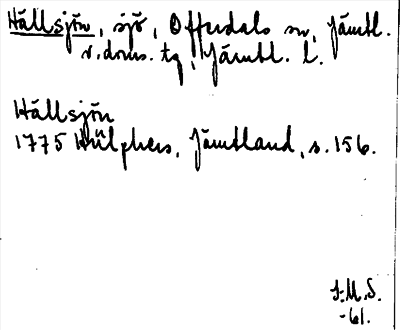 Hällsjön, sjö, Offerdals sn, Jämtl.
v. doms. tg, Jämtl. l.
Hällsjön
1775 Hülphers, Jämtland, s. 156.
J.M.S.
-61.